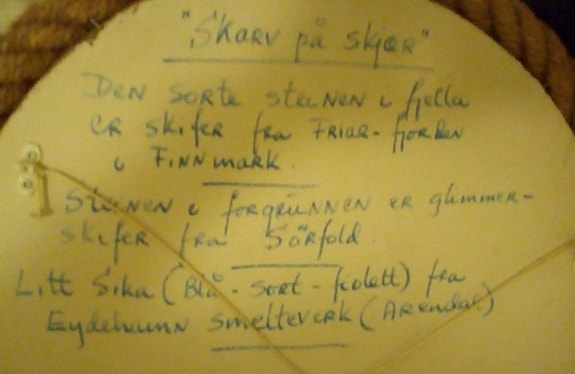 "Skarv på skjær"
Den sorte steinen i fjella
er skifer fra Friar-fjorden
i Finnmark.
Steinen i forgrunnen er glimmer-
skifer fra Sörfold.
Litt Sika (Blå-sort-fiolett) fra
Eydehamn smelteverk (Arendal)